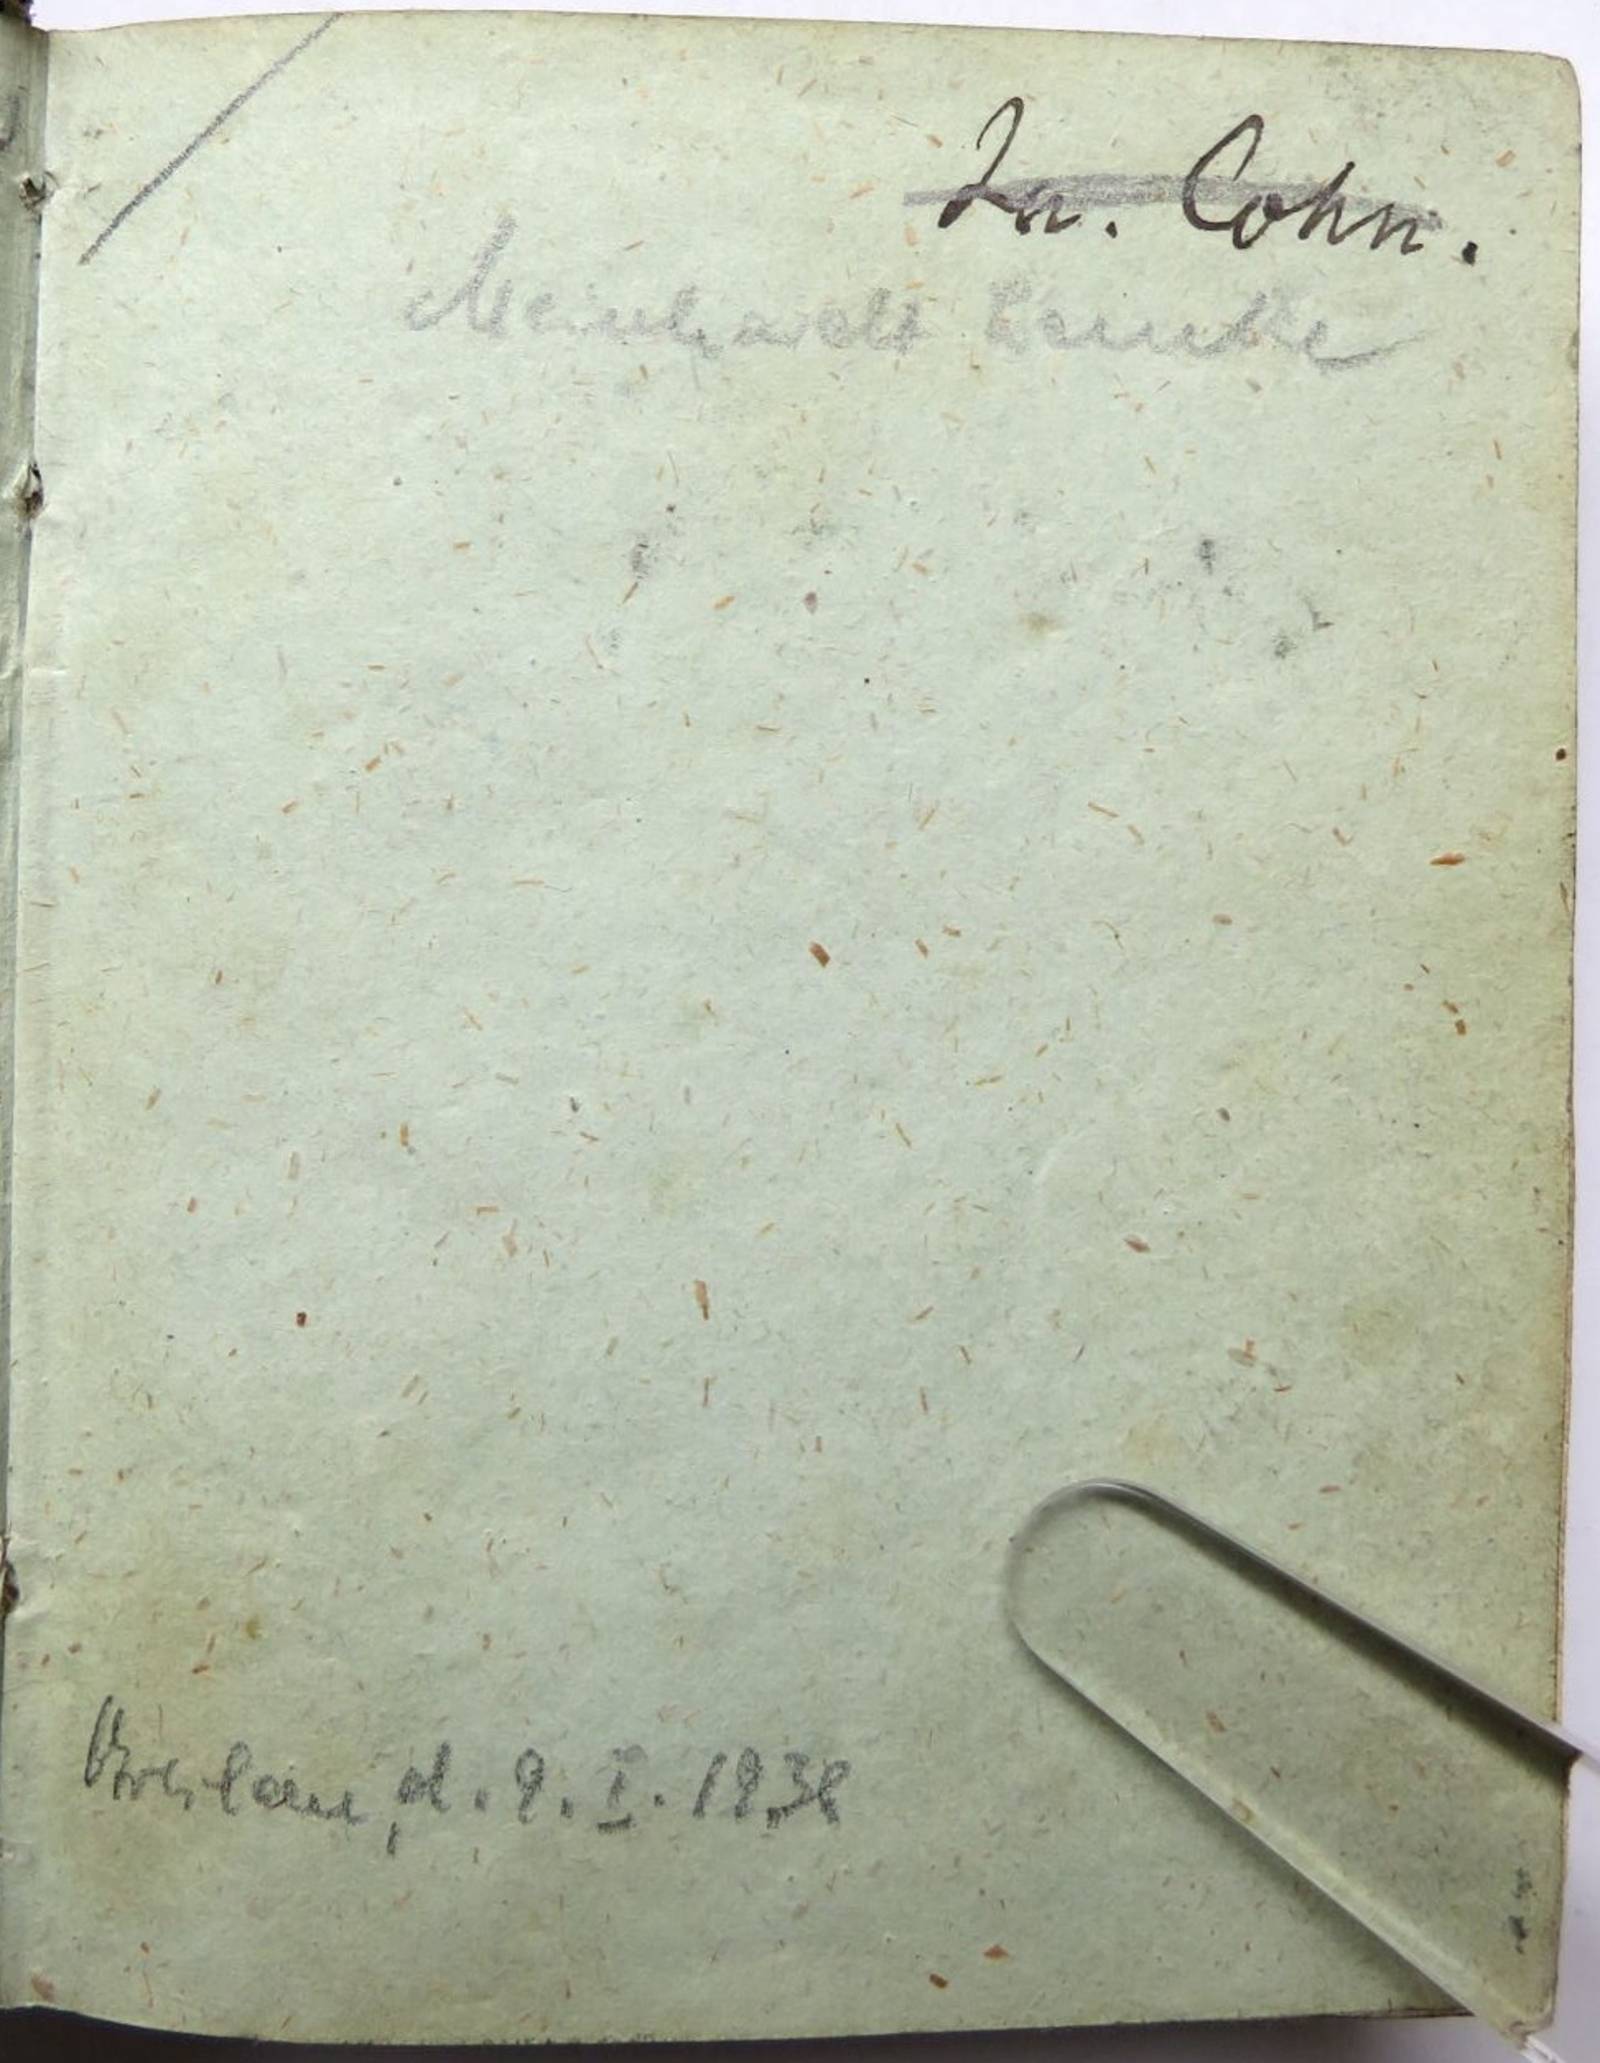 In. Cohn.
Meinhardt Lemke
Breslau, d. 9. I. 1938